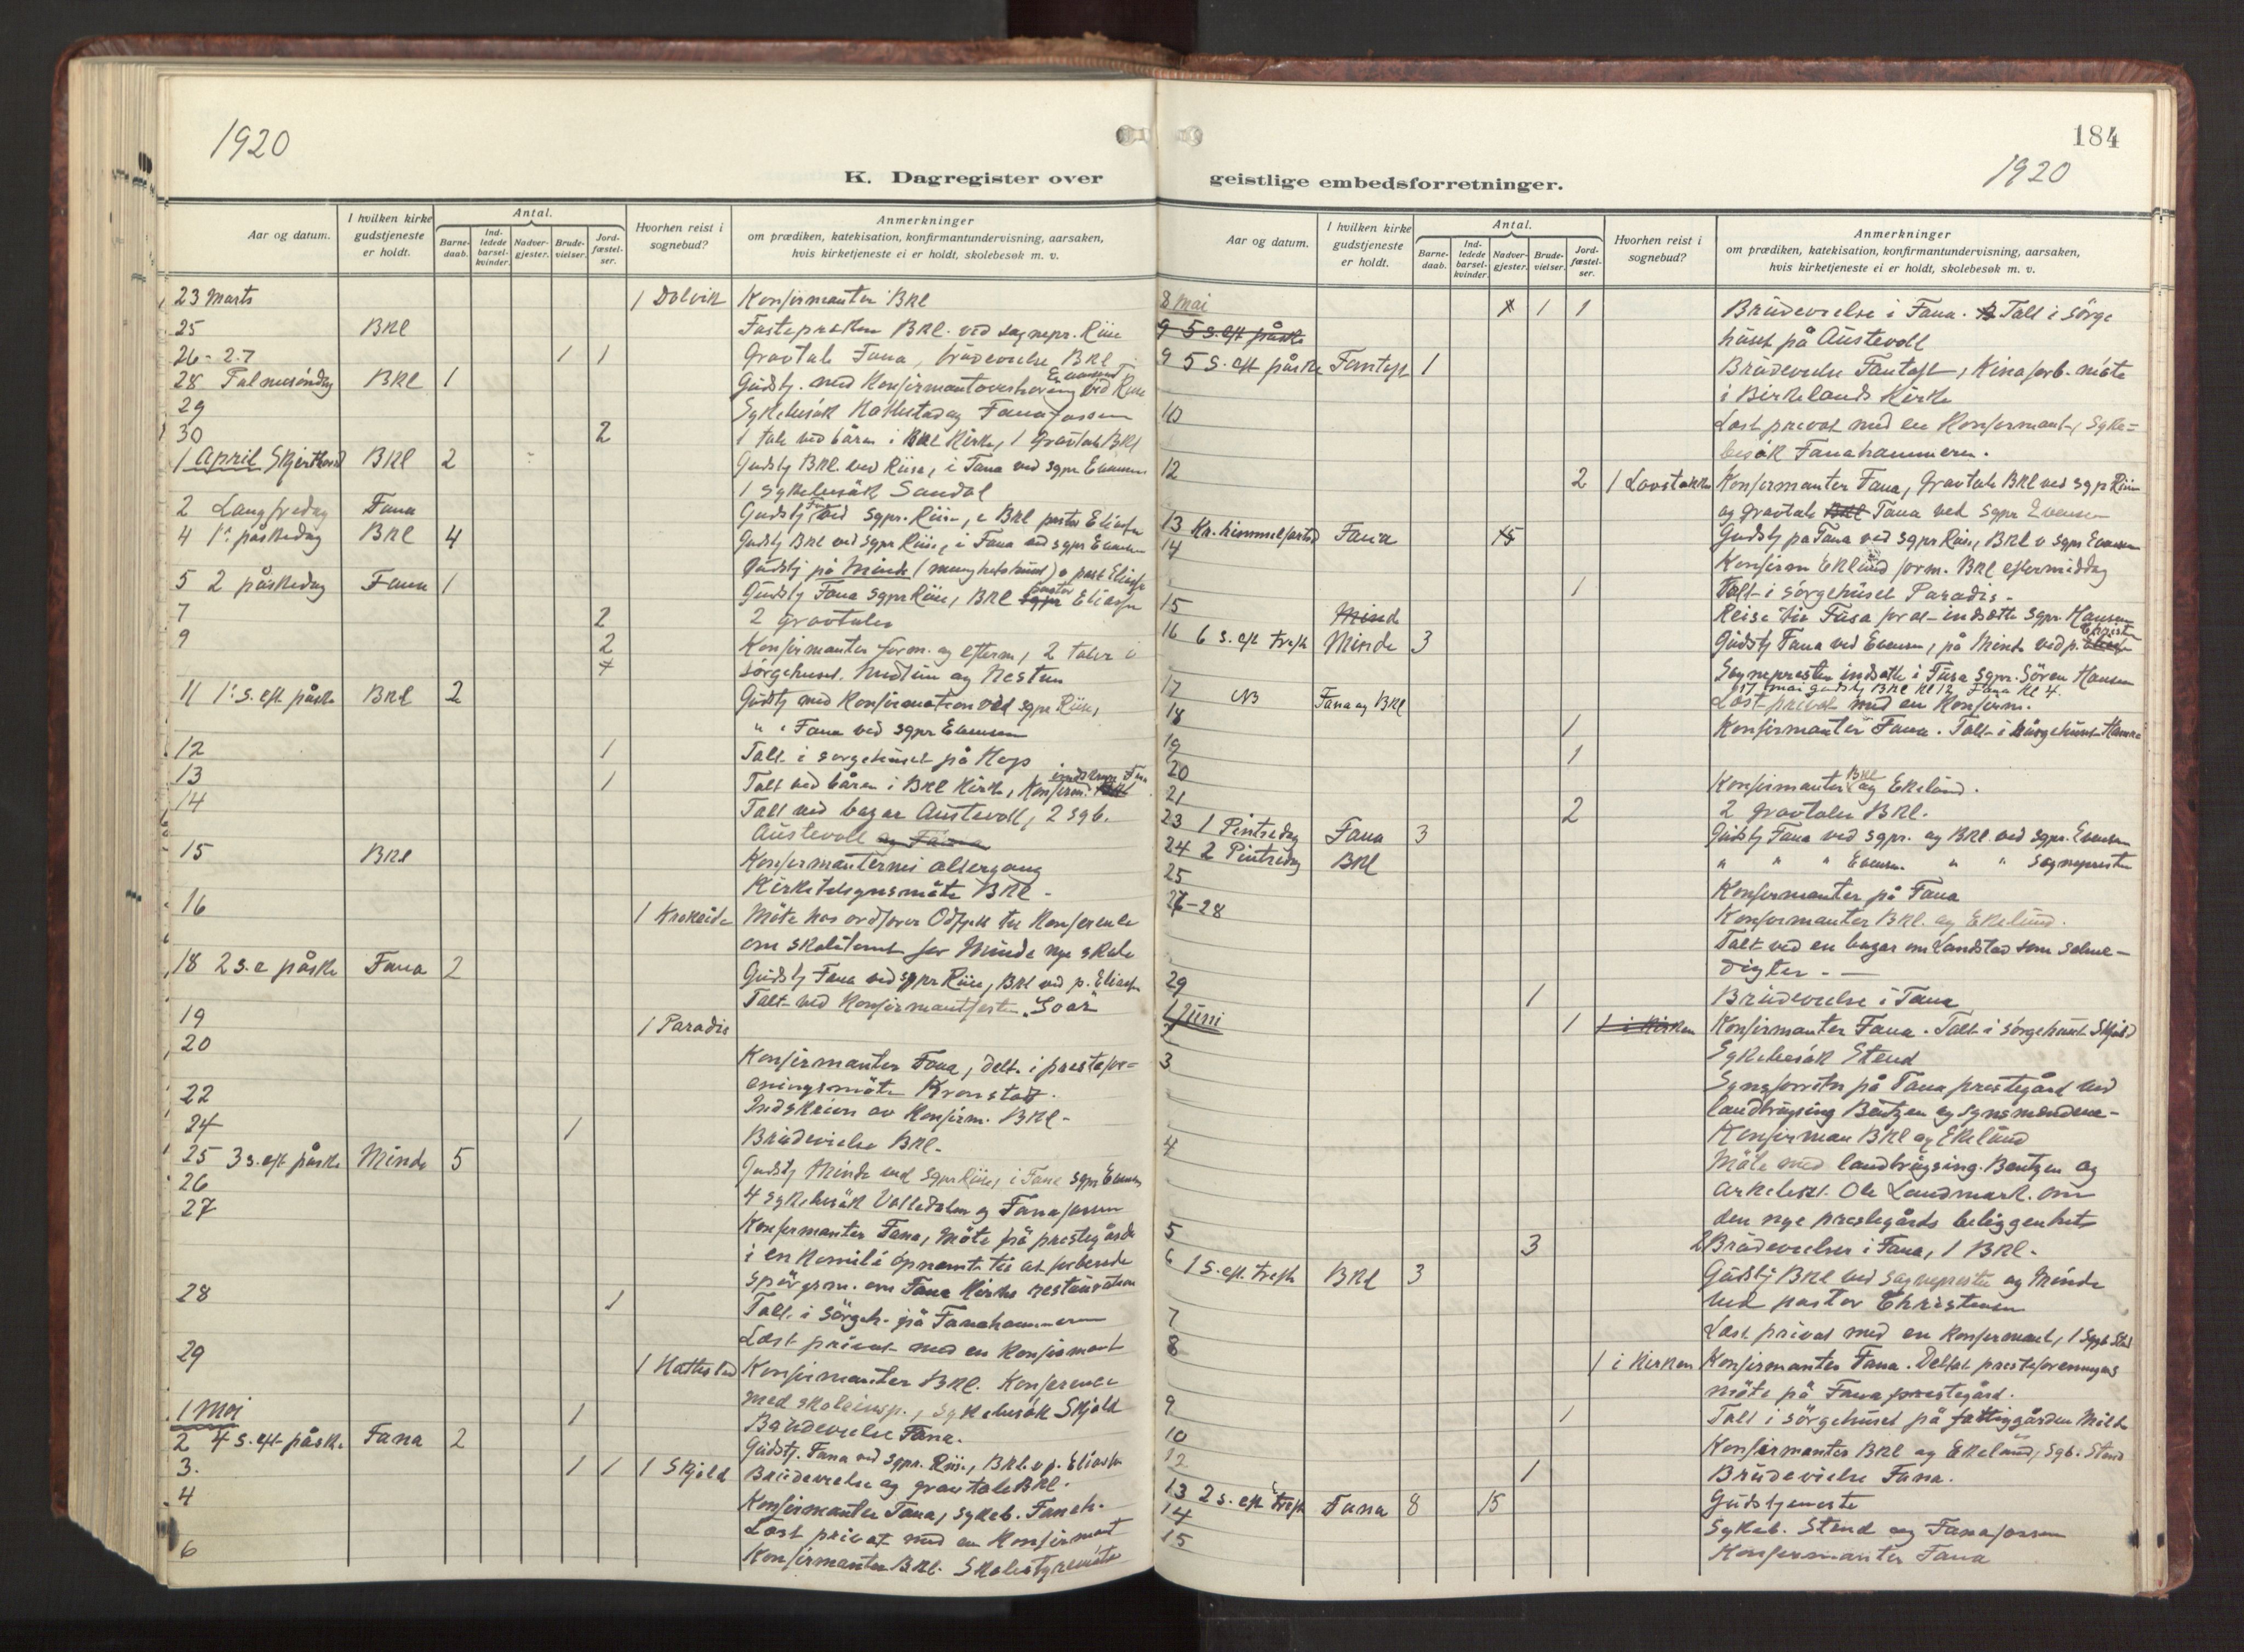 1920
K. Dagregister over
Aar og datum. I hvilken kirke gudstjeneste er holdt. Antal. Barnedaab. Indledede barselkvinder. Nadvergjester. Brudevielser. Jordfæstelser. Hvorhen reist i sognebud? Anmerkninger
om prædiken, katekisation, konfirmantundervisning, aarsaken,
hvis kirketjeneste ei er holdt, skolebesøk m. v.
23 Marts 1 Dolvik Konfirmanter BKl
25 BKl Fastepræken BKl. ved sognepr. Riise
26-27 1 1 Gravtale Fana, brudevielse BKl
28 Palmesöndag BKl 1 Gudstj. med Konfirmantoverhöring ved
29 Sykebesök og Fanafossen
30 2 1 tale ved båren i BKl Kirke, 1 Gravtale BKl
1 April Skjærtorsd BKl 2 Gudstj BKl ved Riise, i Fana ved sgpr Evensen
1 sykebesök Sandal
2 Langfredag Fana Gudstj ved Sgpr. Riise, i BKl pastor Eliassen
4 1. påskedag BKl 4 Gudstj BKl ved sgpr Riise, i Fana ved sgpr Evensen
Gudstj på Minde (menighetshuset) v. past Eliassen
5 2 påskedag Fana 1 Gudstj Fana sgpr Riise, BKl pastor Eliassen
7 2 2 gravtaler
9 2 Konfirmanter form. og efterm, 2 taler i
sörgehuset. Midtun og Nestun
11 1. s. eft påske BKl 2 Gudstj med Konfirmation ved sgpr Riise,
" i Fana ved sgpr Evensen
12 1 Talt i sorgehuset på Hop
13 1 Talt ved båren i BKl Kirke, Konfirm.
14 Talt ved bazar Austevoll, 2 sgb.
Austevoll og Fana
15 BKl Konfirmanternes altergang
Kirketilsynsmöte BKl -
16 1 Krokeide Möte hos ordförer til Konference
om skoletomt for Minde nye skole
18 2 s. e påske Fana 2 Gudstj Fana ved sgpr Riise, BKl ved p. Eliassen
Talt ved Konfirmantfesten
19 1 Paradis
20 Konfirmanter Fana, delt. i prestefor=
eningsmöte Kronstad.
22 Indskrivn av Konfirm. BKl -
24 1 Brudevielse BKl.
25 3 s. eft påske Minde 5 Gudstj Minde ved sgpr Riise, i Fana sgpr Evensen
26 4 sykebesök og Fanafossen
27 Konfirmanter Fana, möte på prestegården
i en Komité opnevnt til at forberede
spörgsm. om Fana Kirkes restauration
28 1 Talt i sörgeh. på Fanahammeren
Læst privat med en Konfirmant
29 1 Hattestad Konfirmanter BKl. Konference
med skoleinsp., sykebesök Skjold
1 Mai 1 Brudevielse Fana.
2 4 s. eft påske Fana 2 Gudstj. Fana ved sgpr. Riise, BKl. v p. Eliassen
3. 1 1 1 Skjold Brudevielse og gravtale BKl.
4 Konfirmanter Fana, sykeb. Fanah.
Læst privat med en Konfirmant
6 Konfirmanter BKl. Skolestyremöte
184
1920
geistlige embedsforretninger.
Aar og datum. I hvilken kirke gudstjeneste er holdt. Antal. Barnedaab. Indledede barselkvinder. Nadvergjester. Brudevielser. Jordfæstelser. Hvorhen reist i sognebud? Anmerkninger
om prædiken, katekisation, konfirmantundervisning, aarsaken,
hvis kirketjeneste ei er holdt, skolebesøk m. v.
8 Mai 1 1 Brudevielse i Fana. Talt i sörge
huset på Austevoll
9 5 s. eft påske
9 5 S. eft påske Fantoft 1 Brudevielse Fantoft, Kinaforb. möte
i Birkelands Kirke
10 Læst privat med en Konfirmant, Syke=
besök Fanahammeren.
12 2 1 Lovstakken Konfirmanter Fana, Gravtale BKl ved sgpr Riise
og gravtale Fana ved sgpr Evensen
13 Kr. himmelfartsd Fana Gudstj på Fana ved sgpr Riise, BKl v sgpr Evensen
14 Konfirm Eklund form. BKl eftermiddag
1 Talt i sörgehuset Paradis -
15 Minde Reise til Fusa for at indsætte sgpr. Hansen
16 6 s. eft påske Minde 3 Gudstj Fana ved Evensen, på Minde ved p.
Sognepresten indsatte i Fusa sgpr. Sören Hansen
17 NB Fana og BKl 17 mai gudstj BKl Kl 12, Fana Kl 4.
Læst privat med en Konfirm.
18 1 Konfirmanter Fana. Talt i sörgehuset
19 1
20 Konfirmanter BKl og Ekelund.
21 2 2 gravtaler BKl.
23 1 Pintsedag Fana 3 Gudstj Fana ved sgpr. og BKl ved sgpr. Evensen
24 2 Pintsedag BKl " " " Evensen " " Sognepresten
25 Konfirmanter på Fana
27-28 Konfirmanter BKl. og Ekelund.
Talt ved en bazar om Landstad som salme-
digter - -
29 1 Brudevielse i Fana
1 Juni
2 1 1 i Kirken Konfirmanter Fana. Talt i sörgehuset Skjold
Sykebesök Stend
3 Synsforretn på Fana prestegård ved
landbruksing Bentzen og synsmændene -
Konfirman BKl og Ekelund
4 Möte med landbruksing. Bentzen og
arkitekt Ole Landmark. om
den nye prestegårds beliggenhet
5 3 2 Brudevielser i Fana, 1 BKl.
6 1 S. eft. trefh BKl 3 Gudstj BKl ved sognepresten og Minde
ved pastor Christensen
7 Læst privat med en Konfirmant,
8 1 i Kirken Konfirmanter Fana. Deltat presteforeningens
möte på Fana prestegård.
9 1 Talt i sörgehuset på fattiggården Milde
10 Konfirmanter BKl og Ekelund, sgb. Stend
12 1 Brudevielse Fana.
13 2 s. eft trefh Fana 8 15 Gudstjeneste
14 Sykeb. Stend og Fanafossen
15 Konfirmanter Fana